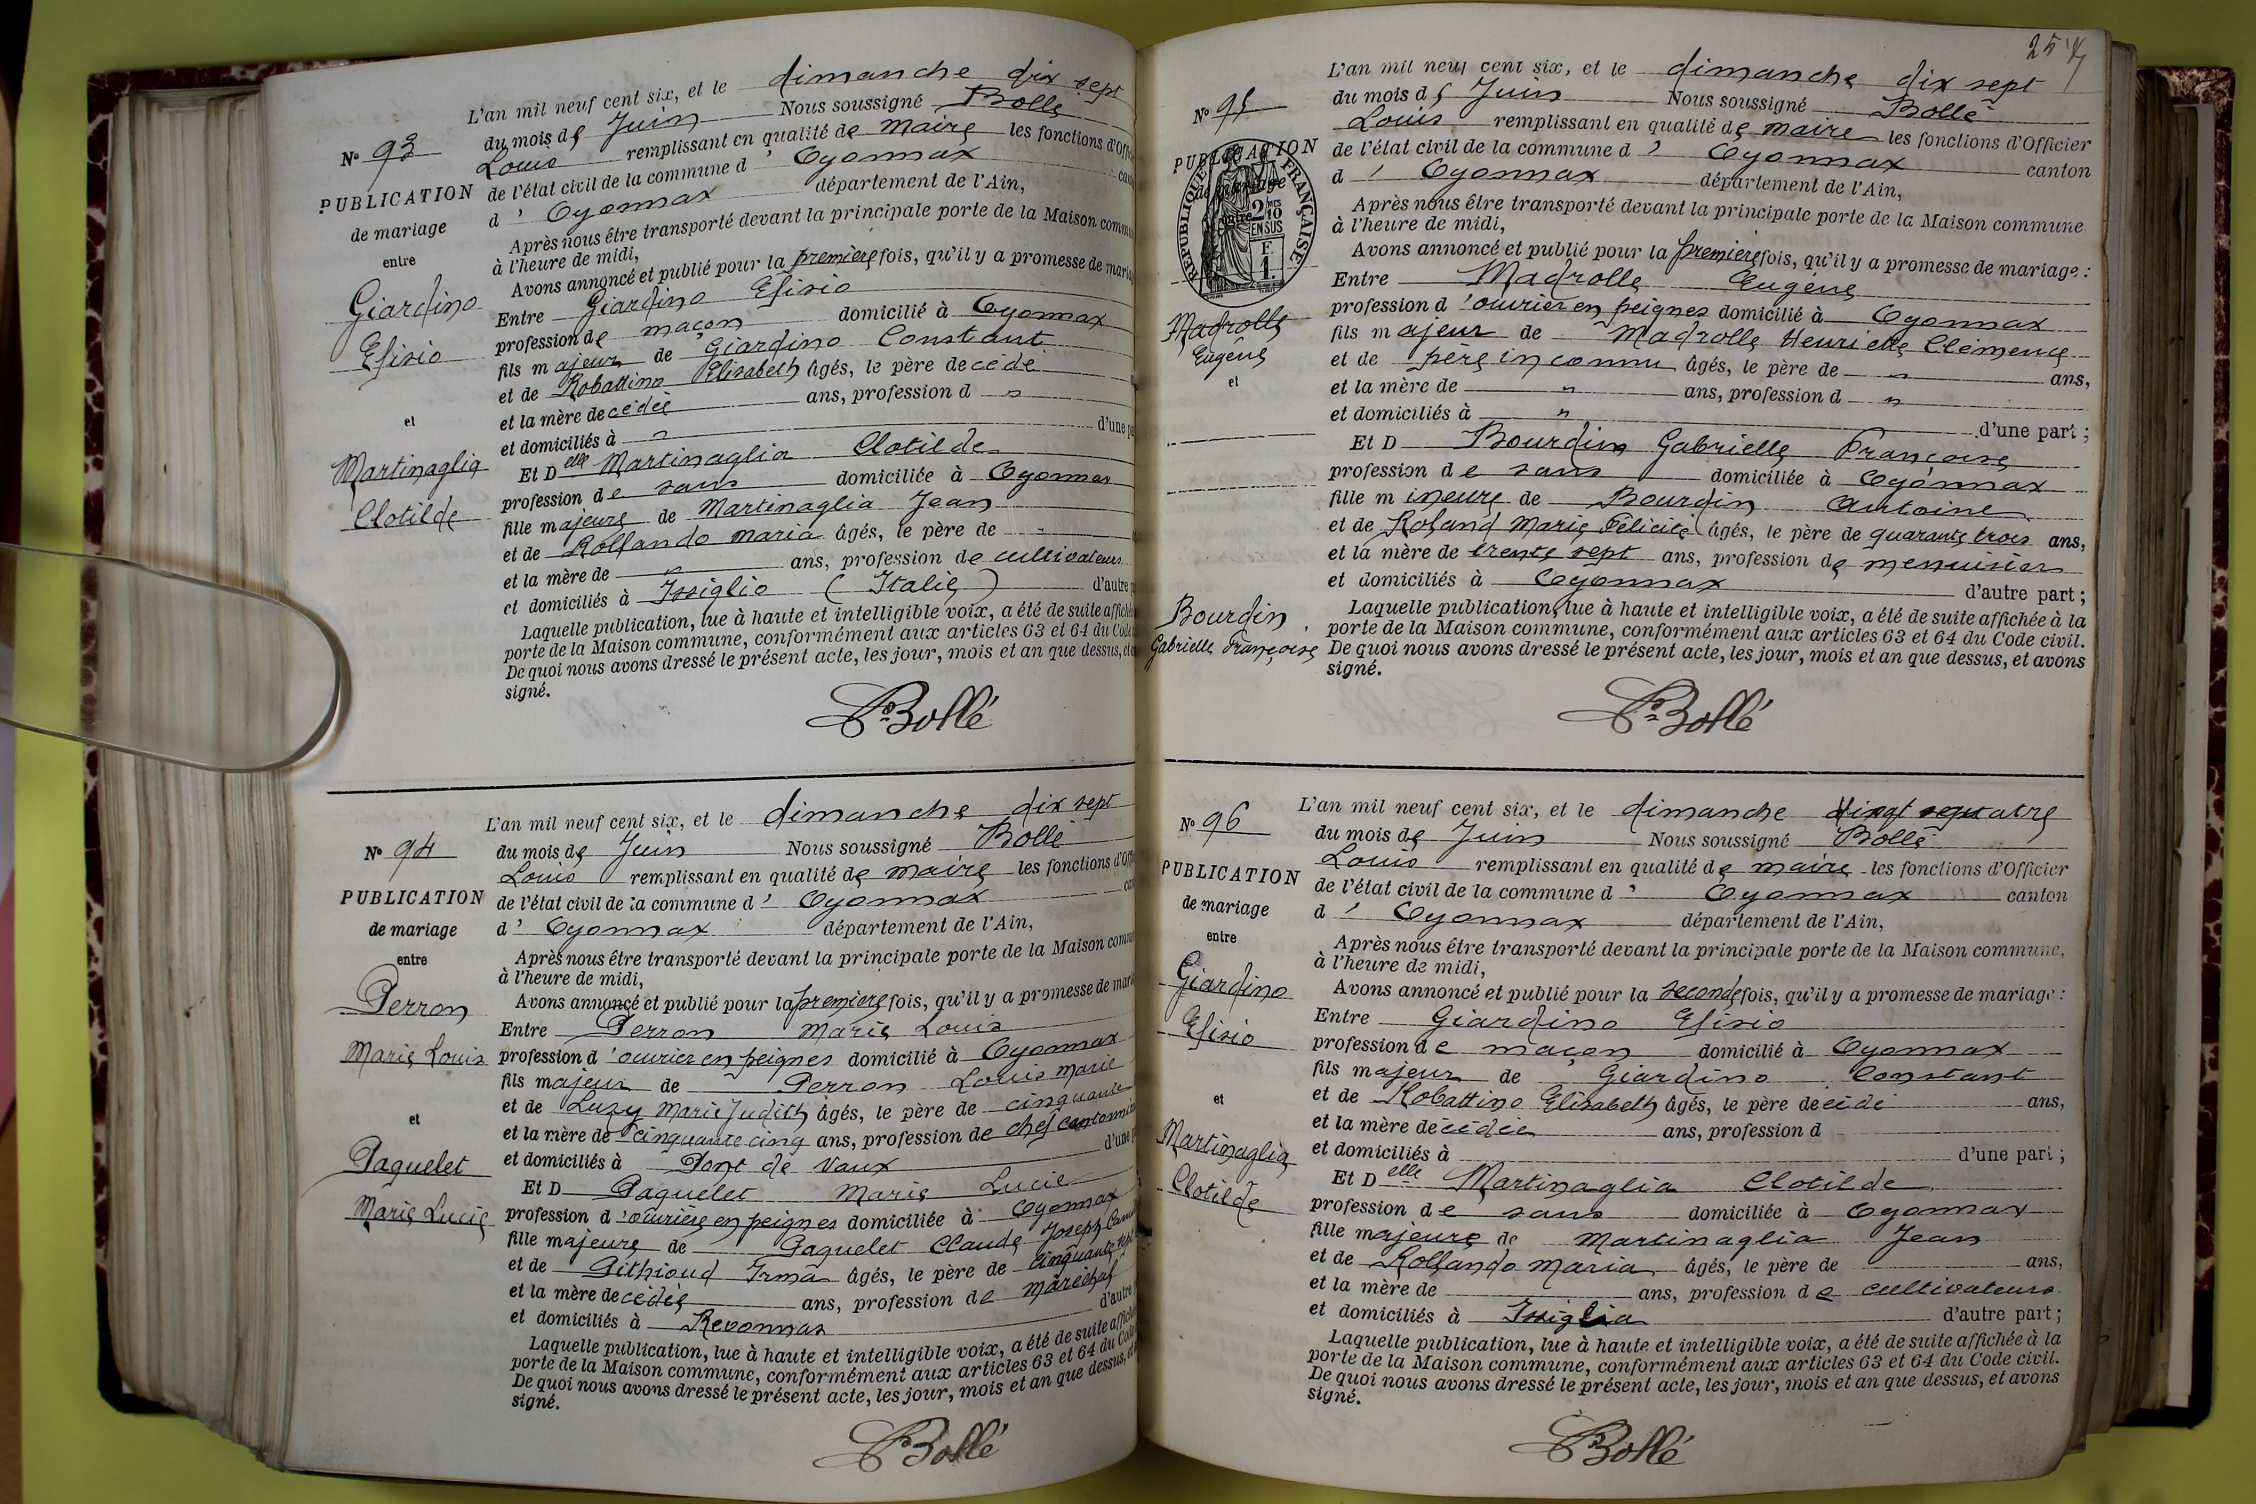 L'an mil neuf cent six, et le dimanche dix sept
du mois de Juin Nous soussigné Bollé
Louis remplissant en qualité de maire les fonctions d'Offi
N° 93
de l'état civil de la commune d' Oyonnax can
PUBLICATION
de mariage
entre
Giardino
Efisio
et
Martinaglia
Clotilde
d' Oyonnax département de l'Ain,
Après nous être transporté devant la principale porte de la Maison commu
à l'heure de midi,
Avons annoncé et publié pour la première fois, qu'il y a promesse de maria
Entre Giardino Efisio
profession de maçon domicilié à Oyonnax
fils majeur de Giardino Constant
et de Robattino Elisabeth âgés, le père décédé
et la mère décédée ans, profession d "
et domiciliés à " d'une pa
Et Delle Martinaglia Clotilde
profession de sans domiciliée à Oyonnax
fille majeure de Martinaglia Jean
et de Rollando Maria âgés, le père de "
et la mère de " ans, profession de cultivateurs
et domiciliés à Issiglio (Italie) d'autre p
Laquelle publication, lue à haute et intelligible voix, a été de suite affichée
porte de la Maison commune, conformément aux articles 63 et 64 du Code
De quoi nous avons dressé le présent acte, les jour, mois et an que dessus, et
signé.
Bollé
L'an mil neuf cent six, et le dimanche dix sept
N° 94
PUBLICATION
de mariage
entre
Perron
Marie Louis
et
Paquelet
Marie Lucie
du mois de Juin Nous soussigné Bollé
Louis remplissant en qualité de maire les fonctions d'Offi
de l'état civil de la commune d' Oyonnax can
d' Oyonnax département de l'Ain,
Après nous être transporté devant la principale porte de la Maison commu
à l'heure de midi,
Avons annoncé et publié pour la première fois, qu'il y a promesse de mari
Entre Perron Marie Louis
profession d'ouvrier en peignes domicilié à Oyonnax
fils majeur de Perron Louis Marie
et de Luzy Marie Judith âgés, le père de cinquante
et la mère de cinquante cinq ans, profession de chef cantonnier
et domiciliés à Pont de Vaux d'une p
Et D Paquelet Marie Lucie
profession d'ouvrière en peignes domiciliée à Oyonnax
fille majeure de Paquelet Claude Joseph
et de Pithioud Irma âgés, le père de cinquante sept
et la mère décédée ans, profession de maréchal
et domiciliés à Revonnas d'autre
Laquelle publication, lue à haute et intelligible voix, a été de suite affichée
porte de la Maison commune, conformément aux articles 63 et 64 du Code
De quoi nous avons dressé le présent acte, les jour, mois et an que dessus, et
signé.
Bollé
257
L'an mil neuf cent six, et le dimanche dix sept
N° 95
PUBLICATION
de mariage
entre
RÉPUBLIQUE FRANÇAISE
2 MES
10
EN SUS
F.
1.
Madrolle
Eugène
et
Bourdin
Gabrielle Françoise
du mois de Juin Nous soussigné Bollé
Louis remplissant en qualité de maire les fonctions d'Officier
de l'état civil de la commune d' Oyonnax
d' Oyonnax département de l'Ain, canton
Après nous être transporté devant la principale porte de la Maison commune
à l'heure de midi,
Avons annoncé et publié pour la première fois, qu'il y a promesse de mariage :
Entre Madrolle Eugène
profession d'ouvrier en peignes domicilié à Oyonnax
fils majeur de Madrolle Henriette Clémence
et de père inconnu âgés, le père de " ans,
et la mère de " ans, profession d "
et domiciliés à " d'une part ;
Et D Bourdin Gabrielle Françoise
profession de sans domiciliée à Oyonnax
fille mineure de Bourdin Antoine
et de Roland Marie Félicité âgés, le père de quarante trois ans,
et la mère de trente sept ans, profession de menuisiers
et domiciliés à Oyonnax d'autre part ;
Laquelle publication, lue à haute et intelligible voix, a été de suite affichée à la
porte de la Maison commune, conformément aux articles 63 et 64 du Code civil.
De quoi nous avons dressé le présent acte, les jour, mois et an que dessus, et avons
signé.
Bollé
L'an mil neuf cent six, et le dimanche vingt quatre
N° 96
PUBLICATION
de mariage
entre
Giardino
Efisio
et
Martinaglia
Clotilde
du mois de Juin Nous soussigné Bollé
Louis remplissant en qualité de maire les fonctions d'Officier
de l'état civil de la commune d' Oyonnax canton
d' Oyonnax département de l'Ain,
Après nous être transporté devant la principale porte de la Maison commune,
à l'heure de midi,
Avons annoncé et publié pour la seconde fois, qu'il y a promesse de mariage :
Entre Giardino Efisio
profession de maçon domicilié à Oyonnax
fils majeur de Giardino Constant
et de Robattino Elisabeth âgés, le père décédé ans,
et la mère décédée ans, profession d
et domiciliés à d'une part ;
Et Delle Martinaglia Clotilde
profession de sans domiciliée à Oyonnax
fille majeure de Martinaglia Jean
et de Rollando Maria âgés, le père de ans,
et la mère de ans, profession de cultivateurs
et domiciliés à Issiglia d'autre part ;
Laquelle publication, lue à haute et intelligible voix, a été de suite affichée à la
porte de la Maison commune, conformément aux articles 63 et 64 du Code civil.
De quoi nous avons dressé le présent acte, les jour, mois et an que dessus, et avons
signé.
Bollé